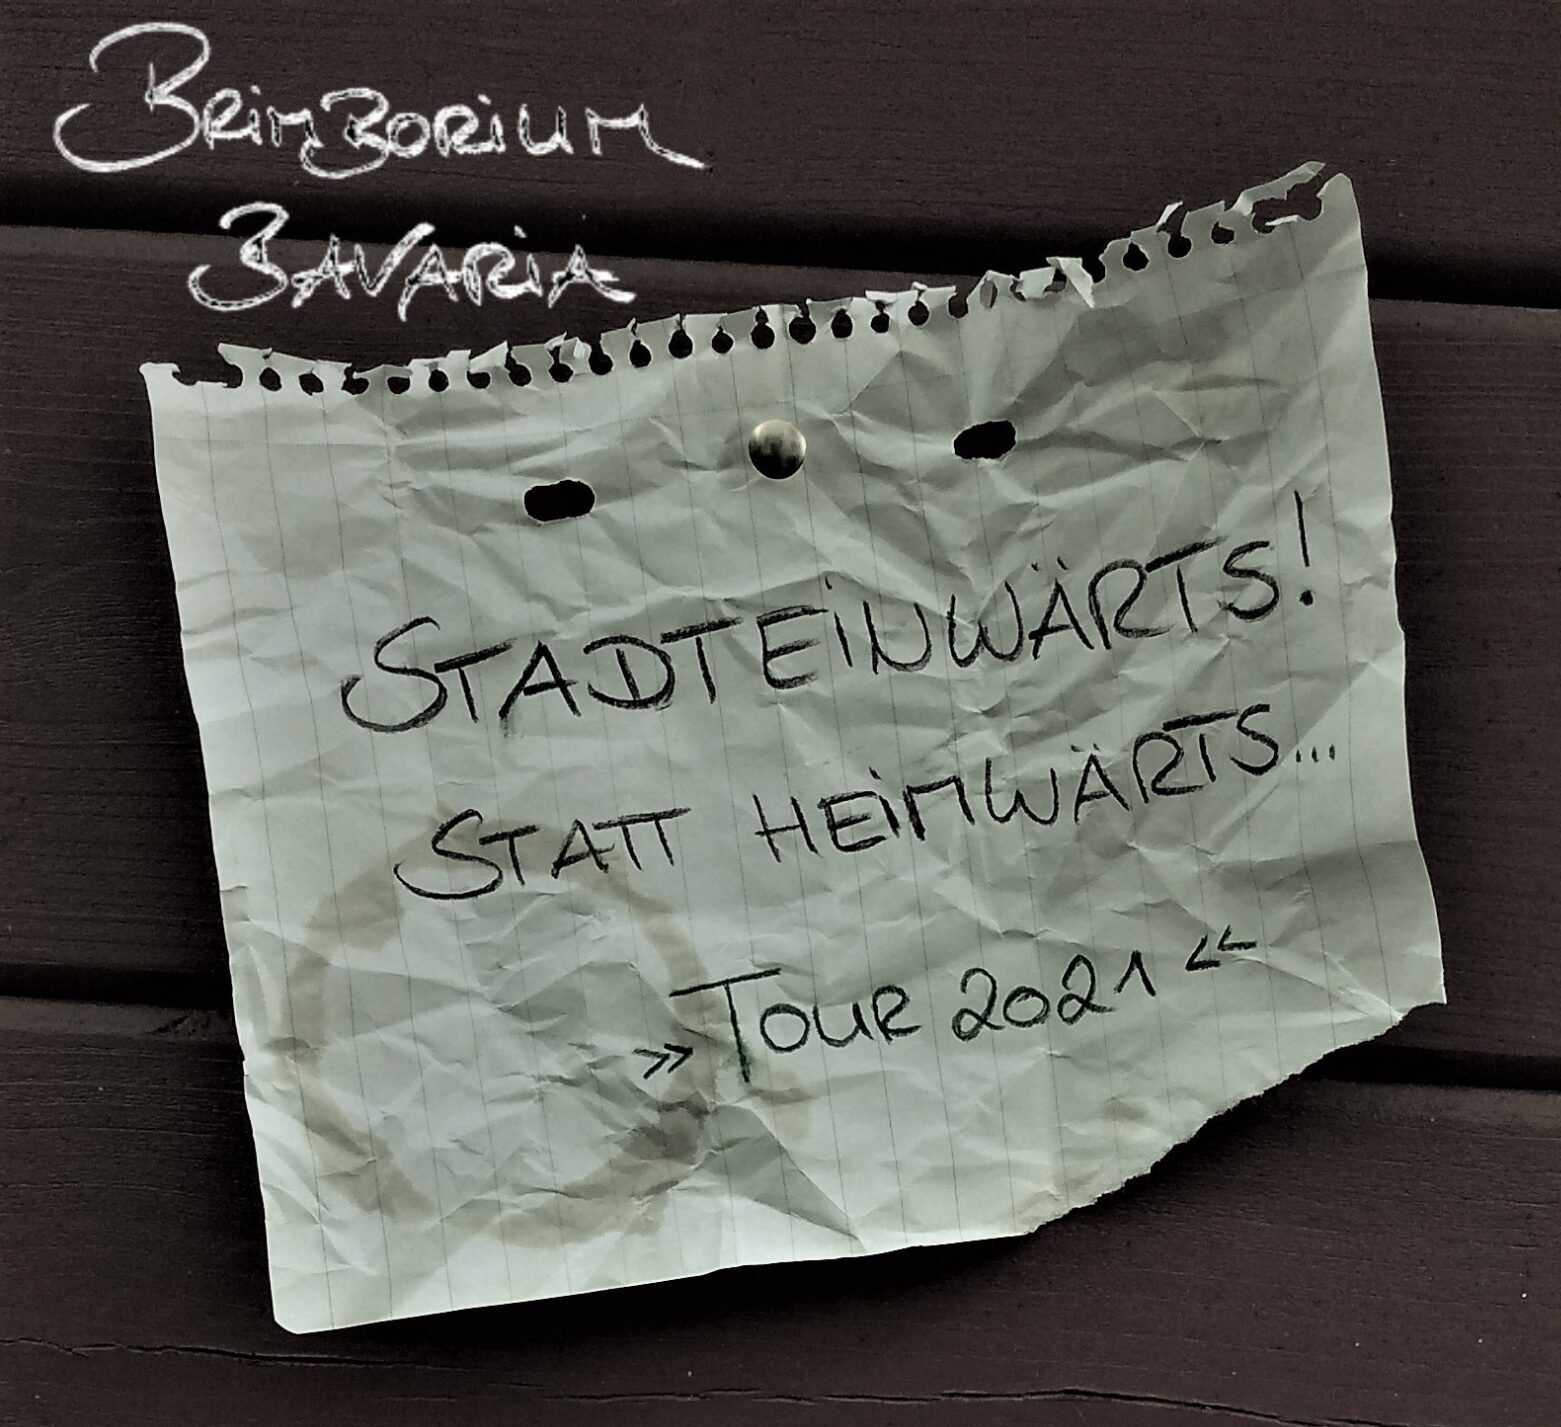 BRIMBORIUM
BAVARIA
STADTEINWÄRTS!
STATT HEIMWÄRTS...
>> TOUR 2021 <<